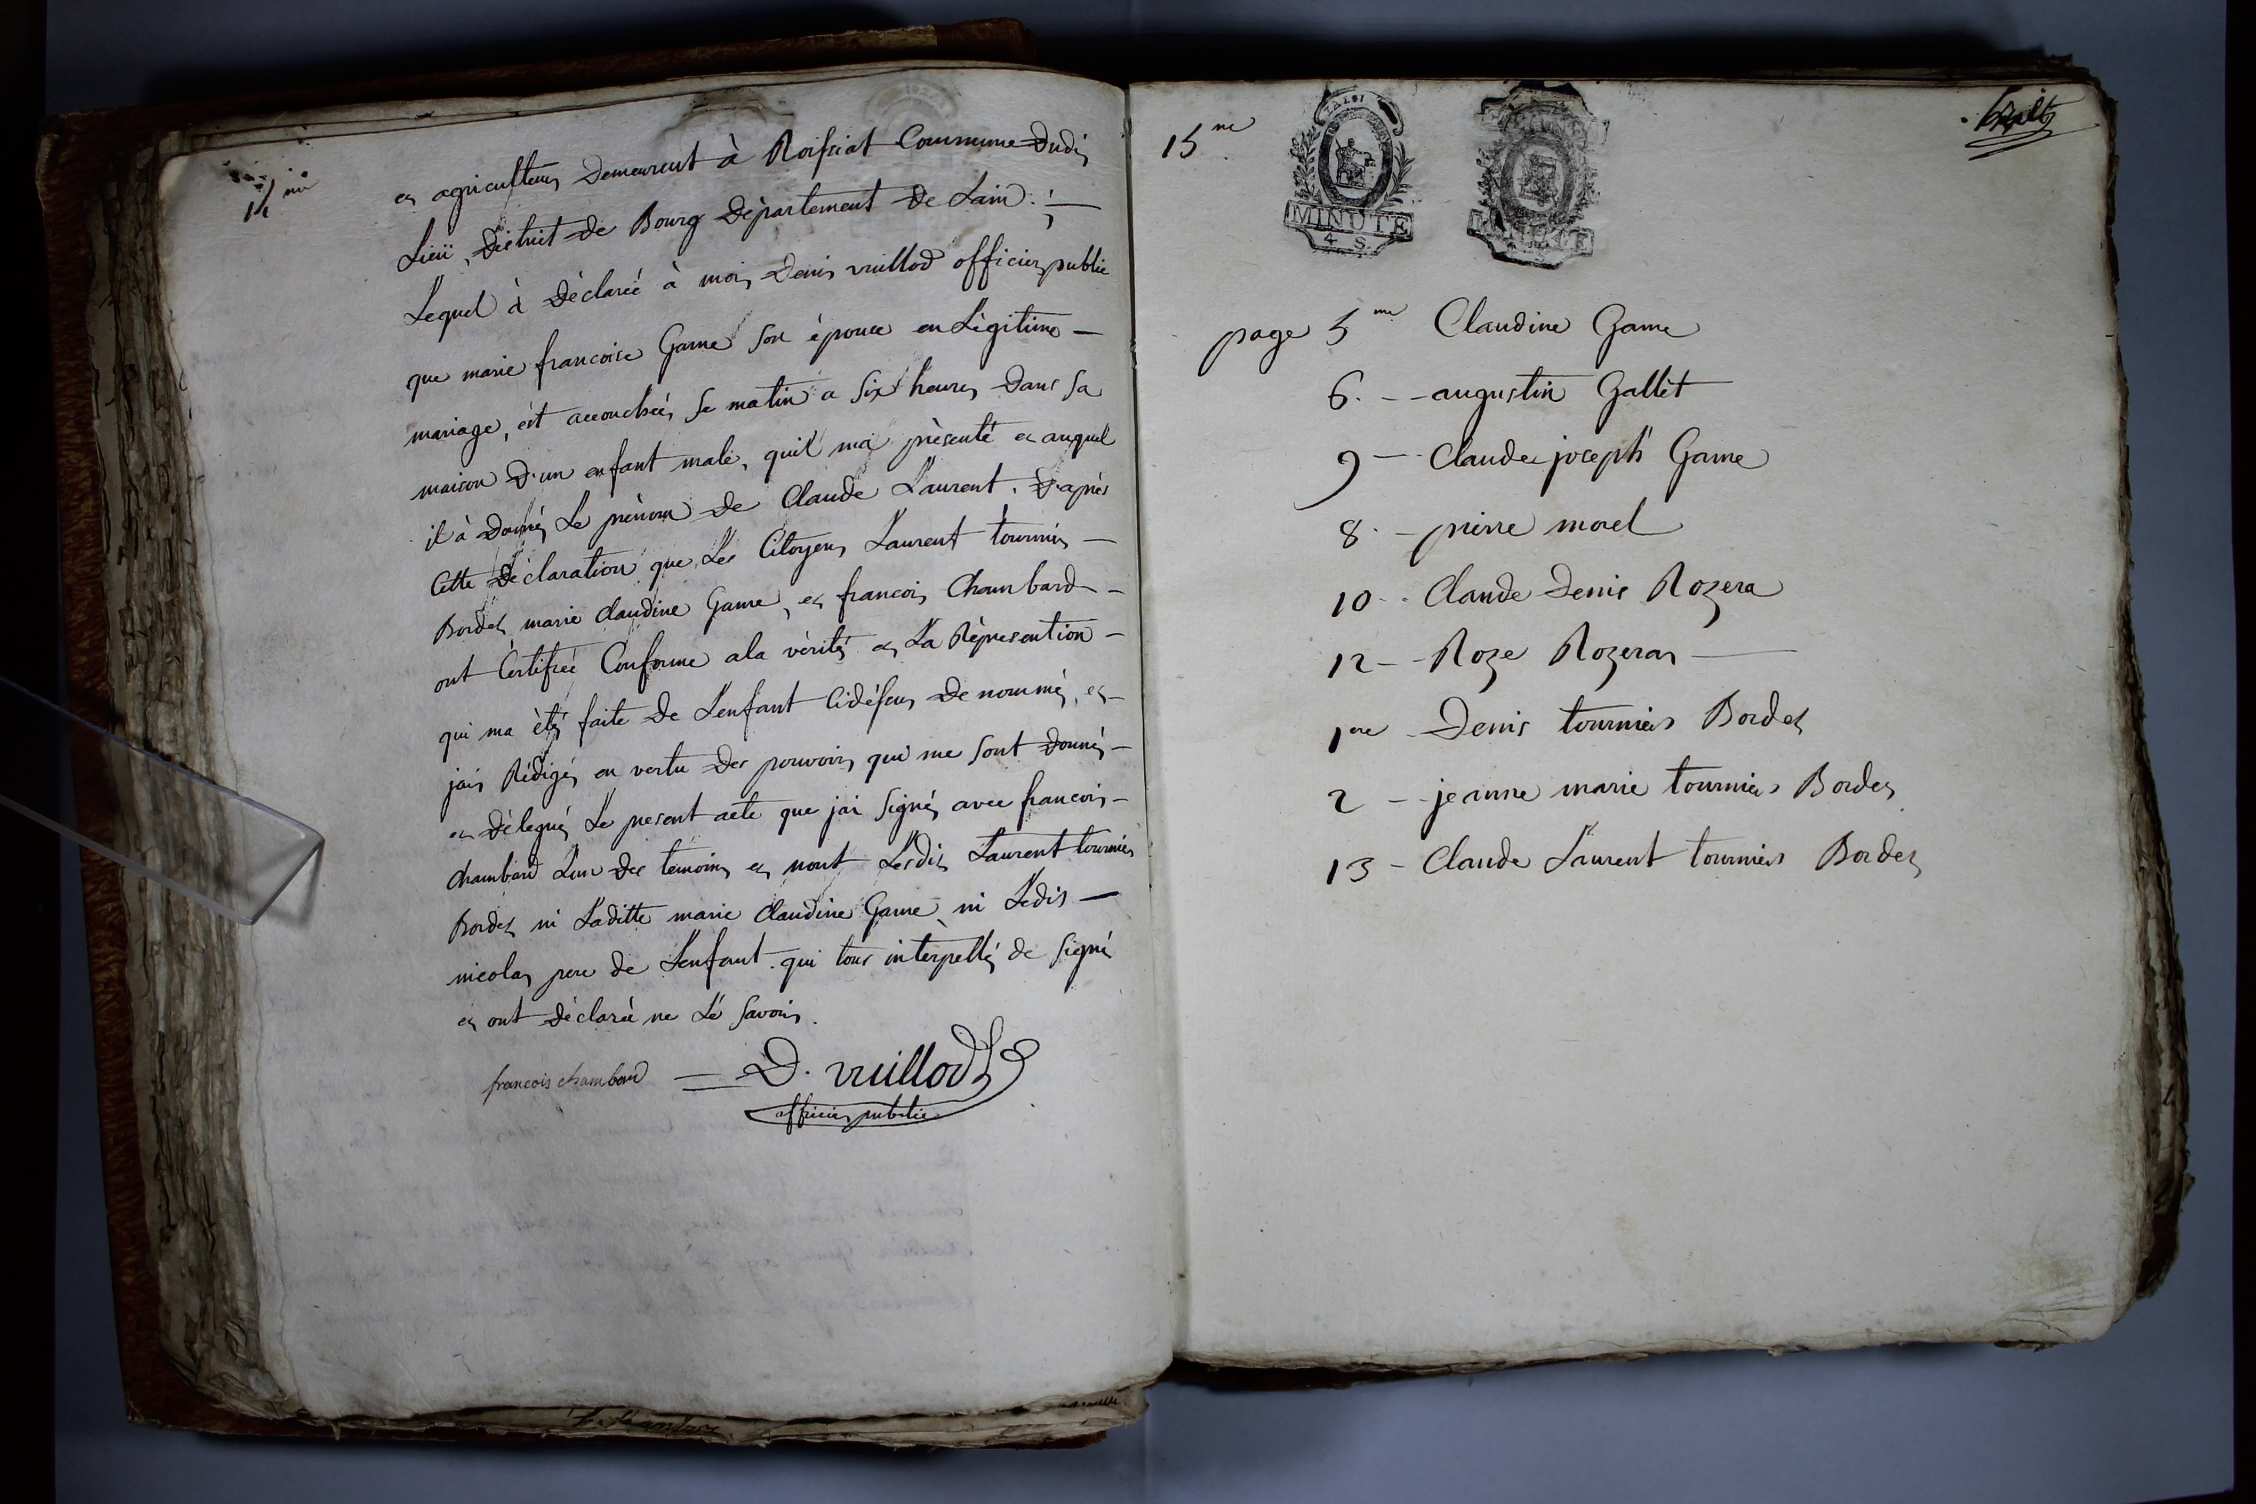 14 me
et agriculteur Demeurent à Roissiat Commune Dudis
Lieü, District de Bourg Département de Lain.
Lequel à Déclaréé à moi, Denis vuillod officier public
que marie francoise Game son épouse en Légitime
mariage, èst accouchéé, se matin a six heures, Dans sa
maison D'un enfant male, quil ma présenté et auquel
il à Donné, Le prénom de Claude Laurent. D'après
Cette Déclaration que Les Citoyens Laurent tournier
Bordet marie claudine Game, et francois Chambard
ont Certifiéé Conforme ala vérité, et La Réprésention
qui ma èté faite de L'enfant Cidéssus De nommé, et
jais Rédigé, en vertu Des pouvoirs que me sont donnés
et Dèlegués Le présent acte que jai signé, avec francois
chambard Lun Des temoins et nont Lesdis Laurent tournier
Bordet ni Laditte marie claudine Game ni Ledis
nicolas pere de L'enfant. qui tous intèrpellés de signé
et ont Déclaréé ne Lé savoir.
francois chambard D. vuillod
officier public
15 me
MINUTE
4 S.
page 5 me Claudine Game
6. -- augustin Gallèt
9 -- Claude joseph Game
8. - pierre morel
10 -- Claude Denis Rozera
12 -- Roze Rozeras
1ere Denis tournier Bordet
2 -- jeanne marie tournier Bordet
13 - Claude Laurent tournier Bordet